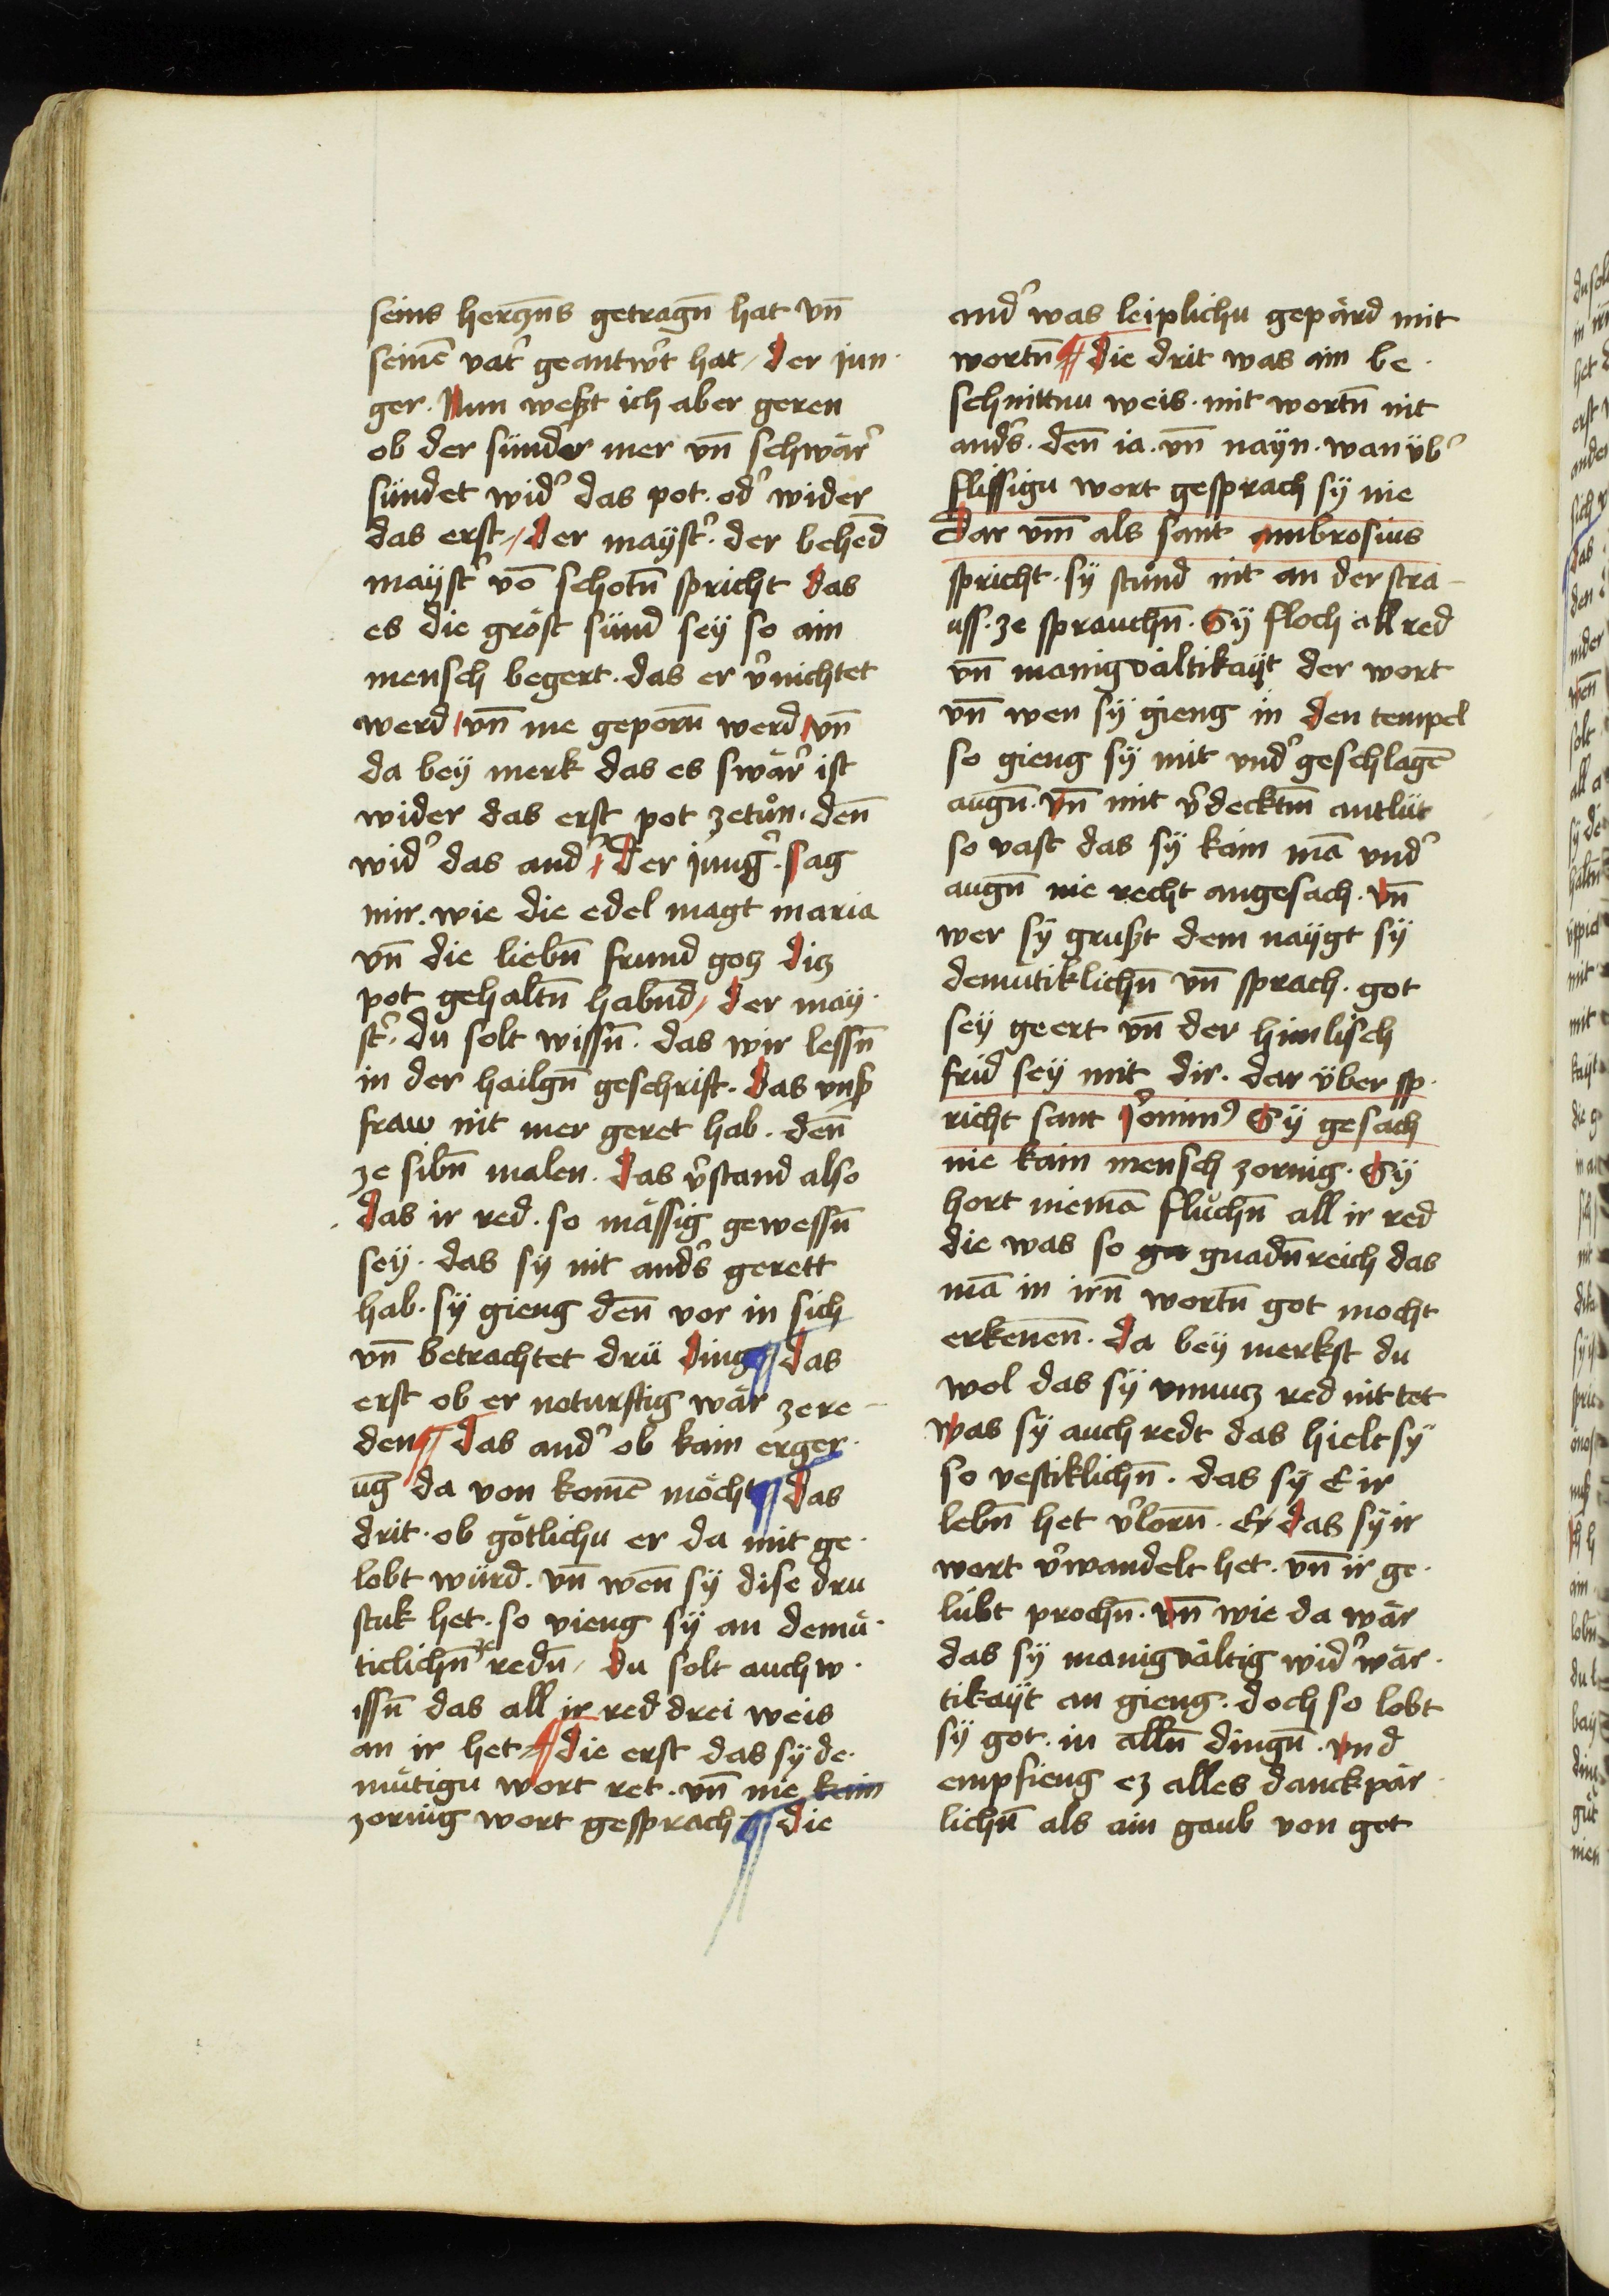 seins herczn̄s getragn̄ hat vn̄
seinē vatˀ geantwˀt hat / der jun·
ger · Nun weßt ich aber geren
ob der sünder mer vn̄ schwärˀ
sündet widˀ das pot · odˀ wider
das erst / der maÿstˀ · der behēd
maÿstˀ võ schotn̄ spricht das
es die gröst sünd seÿ so ain
mensch begert · das er vˀnichtet
werd / vn̄ nie geporn̄ werd / vn̄
da beÿ merk das es swärˀ ist
wider das erst pot zetůn · den̄
widˀ das andˀ / der jungˀ · sag
mir · wie die edel magt maria
vn̄ die liebn̄ frund gotz ditz
pot gehaltn̄ habn̄d / der maÿ·
stˀ · du solt wissn̄ · das wir lessn̄
in der hailgn̄ geschrift · das vnß
fraw nit mer geret hab · den̄
ze sibn̄ malen · das vˀstand also
das ir red · so mässig gewessn̄
seÿ · das sÿ nit andˀs gerett
hab · sÿ gieng den̄ vor in sich
vn̄ betrachtet drü ding ¶ das
erst ob er noturftig wär zere-
den ¶ das andˀ ob kain erger·
ūg da von komē möcht ¶ das
drit · ob götlichu er da mit ge·
lobt würd · vn̄ wen̄ sÿ dise dru
stuk het · so vieng sÿ an demü·
ticlichn̄ ze redn̄ / du solt auch w·
issn̄ das all ir red drei weis
an ir het ¶ die erst das sÿ de·
mütigu wort ret · vn̄ nie kain
zornig wort gesprach ¶ die
andˀ was leiplichu gepärd mit
wortn̄ ¶ die drit was ain be·
schnittnu weis · mit wortn̄ nit
andˀs · den̄ ia · vn̄ naÿn · wan übˀ
flissigu wort gesprach sÿ nie
dar vm̄ als sant ambrosius
spricht · sÿ stůnd nit an der stra-
uss · ze sprauchn̄ · Sÿ floch all red
vn̄ manigvältikaÿt der wort
vn̄ wen sÿ gieng in den tempel
so gieng sÿ mit vndˀgeschlagē
augn̄ · vn̄ mit vˀdecktm̄ antlüt
so vast das sÿ kain mā vndˀ
augn̄ nie recht angesach · vn̄
wer sÿ grußt dem naÿgt sÿ
demütiklichn̄ vn̄ sprach · got
seÿ geert vn̄ der himlisch
frid seÿ mit dir · dar über sp·
richt sant Jˀonimꝰ Sÿ gesach
nie kain mensch zornig · Sÿ
hort niemā flůchn̄ all ir red
die was so ga gnadn̄reich das
mā in irn̄ wortn̄ got mocht
erkenen̄ · da beÿ merkst du
wol das sÿ vnnutz red nit tet
was sÿ auch redt das hielt sÿ
so vestiklichn̄ · das sÿ E ir
lebn̄ het vˀlorn̄ · Er das sÿ ir
wort vˀwandelt het · vn̄ ir ge·
lübt prochn̄ · vn̄ wie da wär
das sÿ manigvältig widˀwär·
tikaÿt an gieng · doch so lobt
sÿ got · in alln̄ dingn̄ · vnd
empfieng ez alles danckpär·
lichn̄ als ain gaub von got